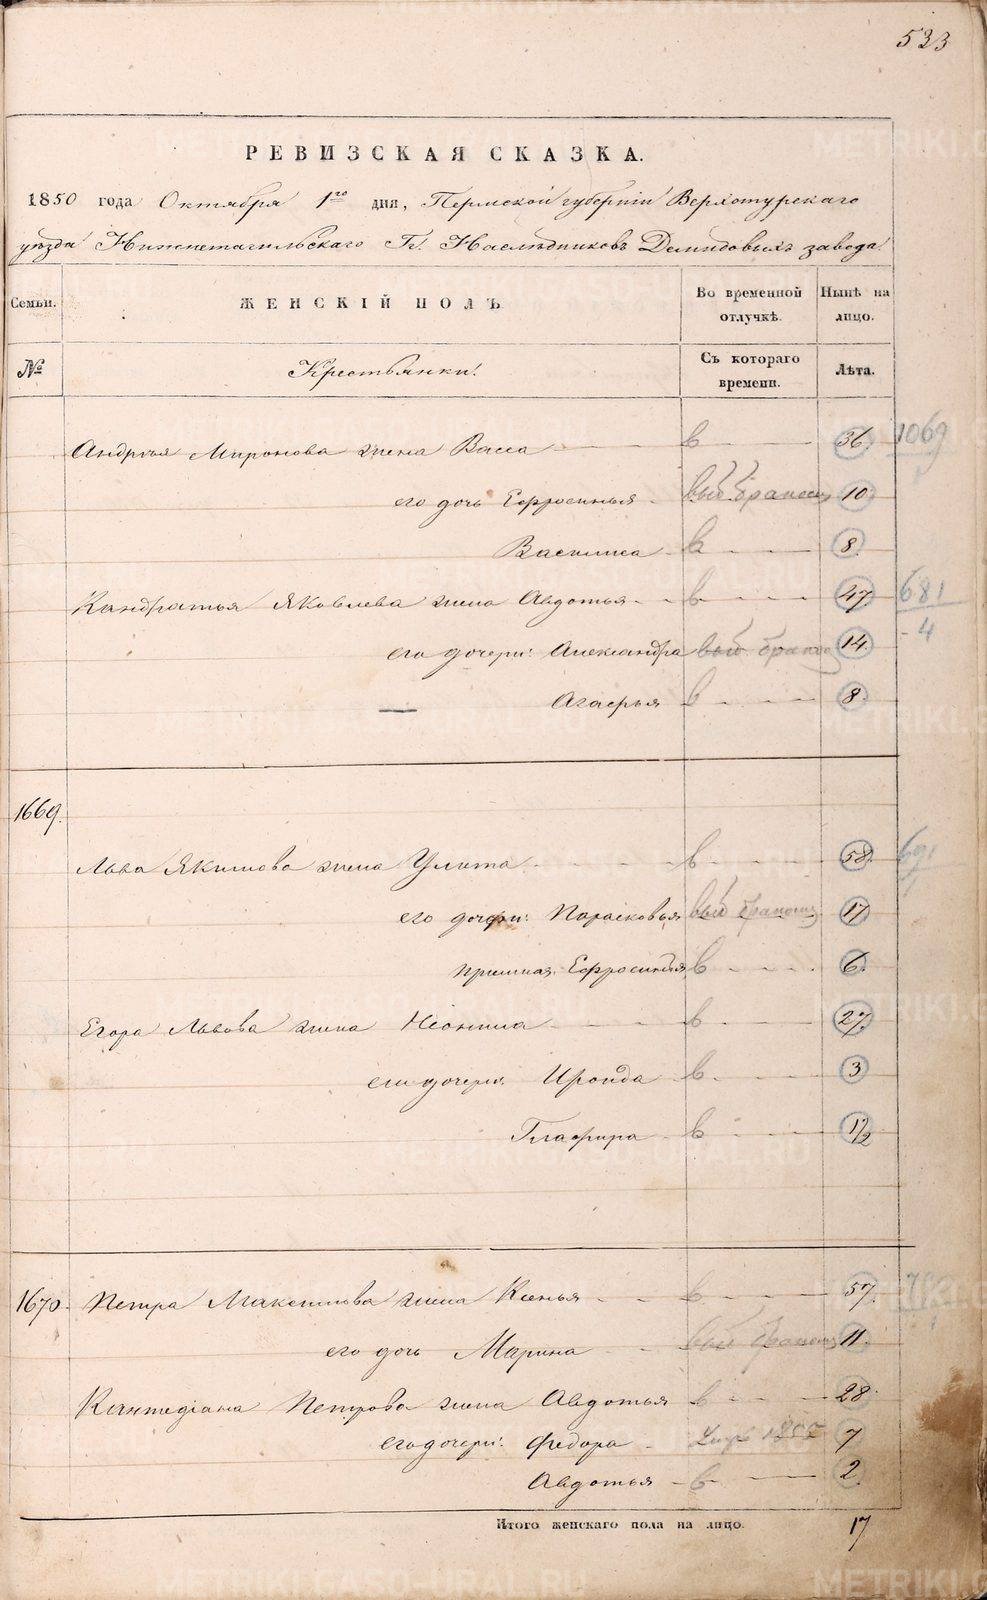 533
РЕВИЗСКАЯ СКАЗКА.
1850 года Октября 1го дня, Пермской губернiи Верхотурскаго
уѣзда Нижнетагильскаго Гг. Наслѣдниковъ Демидовыхъ завода.
Семьи. ЖЕНСКIЙ ПОЛЪ Во временной отлучкѣ. Нынѣ на лицо.
№ Крестьянки: Съ котораго времени. Лѣта.
Андрея Миронова жена Васса в 36. 1069
его дочь Ефросинья выб браком 10
Василиса в 8.
Кандратья Яковлева жена Авдотья в 47 681
его дочери: Александра выб браком 14. - 4
Агафья в 8.
1669.
Льва Якимова жена Улита в 58. 691
его дочери: Парасковья выб браком 17
примная Ефросинья в 6.
Егора Львова жена Неонила в 27.
его дочери: Ироида в 3
Глафира в 1/2
1670. Петра Максимова жена Ксенья в 57.
его дочь Марина выб браком 11.
Кинтедiана Петрова жена Авдотья в 28.
его дочери: Федора 7
Авдотья в 2.
Итого женскаго пола на лицо. 17
METRIKI.GASO-URAL.RU